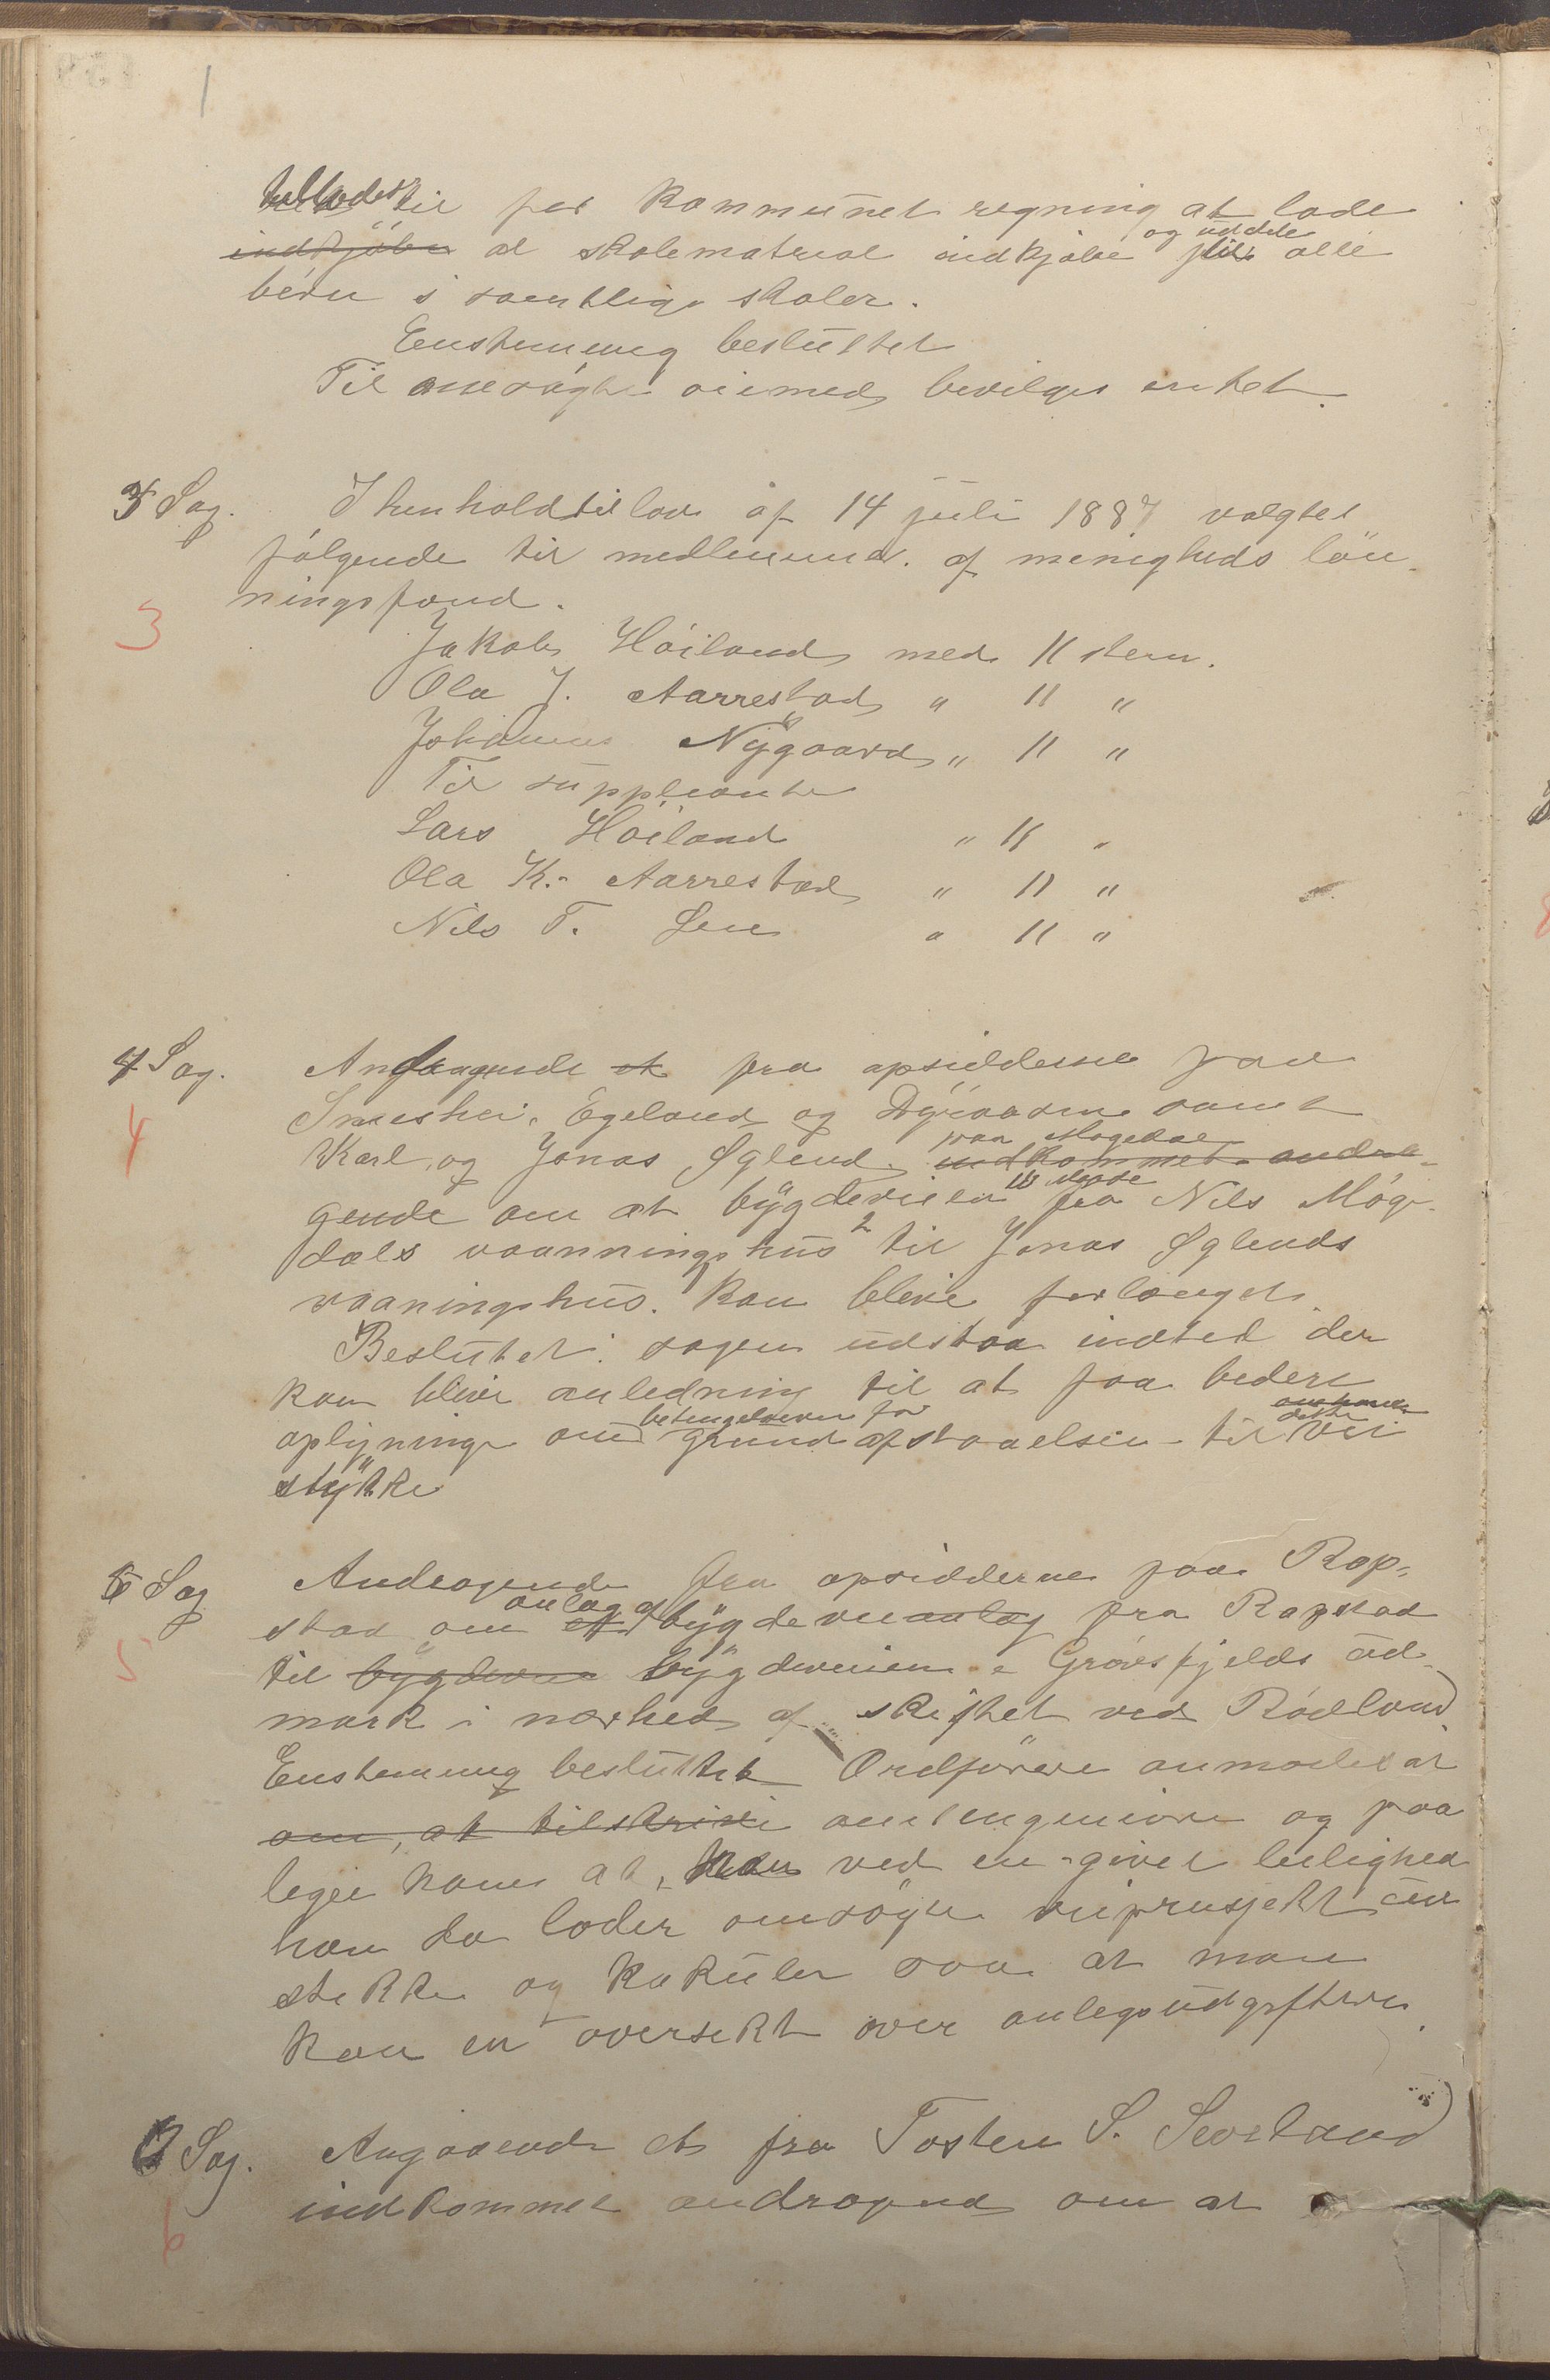 1
tillades til for kommunes regning at lade
indkjøbe al skolematrial indkjøbe og uddele til alle
børn i samtlige skoler.
Enstemmig besluttet
Til omsøgte øiemed bevilges intet.
3 Sag. I henhold til lov af 14 juli 1887 valgtes
følgende til medlemmer af menigheds løn-
ningsfond.
3
Jakob Høiland med 11 stem.
Ola J. Aarrestad " 11 "
Johannes Nÿgaard " 11 "
Til suppleanter
Lars Höiland " 11 "
Ola K. Aarrestad " 11 "
Nils T. Lee " 11 "
4 Sag. Andragende et fra opsidderne paa
4
Smeshei, Egeland og samt
Karl og Jonas Eglend paa Mogedal indkommet andra-
gende om at bÿgdeveien fra Nils Møge-
dals vaanningshus til Jonas Eglends
vaaningshus. kan blive forlænget.
Beslutet. sagen udstaa indtil der
kan blive anledning til at faa bedere
oplysninge om betingelserne for grundafstaaelsen til dette vei
stÿkke
5 Sag Andragende fra opsidderne paa Rap-
5
stad om anlæg af bÿgdeveianlæg fra Rapstad
til bygdeveie bÿgdeveien i Grøsfjelds ud-
mark i nærhed af skiftet ved Rødland
Enstemmig besluttet Ordførere anmodes at
om, at tilskrive amtingeniøren og paa
legge ham at, ved en givet leilighed
han da lader omsøgte veiprosjekt ud
stikke og kakuler saa at man
kan en oversikt over anlegsudgifterne.
6 Sag. Angaaende et fra Tosten S. Sevland
6
indkommet andragende om at